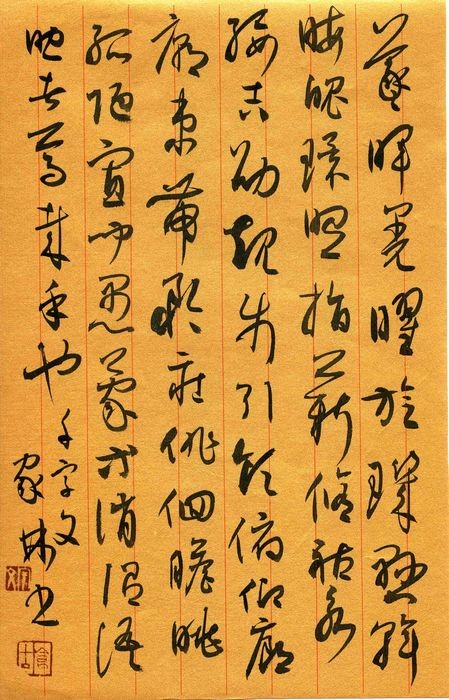 羲暉晃曜旋璣懸斡
晦魄環照指薪修祜永
綏吉劭矩步引領俯仰廊
廟束帶矜莊俳佪瞻眺
孤陋寡聞愚蒙等誚謂語
助者焉哉乎也千字文
家林书